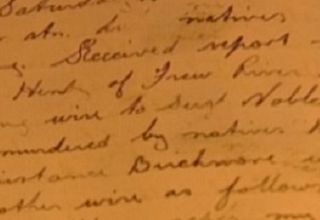 Saturda
stn. to natives
g. Received report
Henty of Frew River
ng wire to Sergt Noble
murdered by natives
istance Birchmore w
other wire as follows